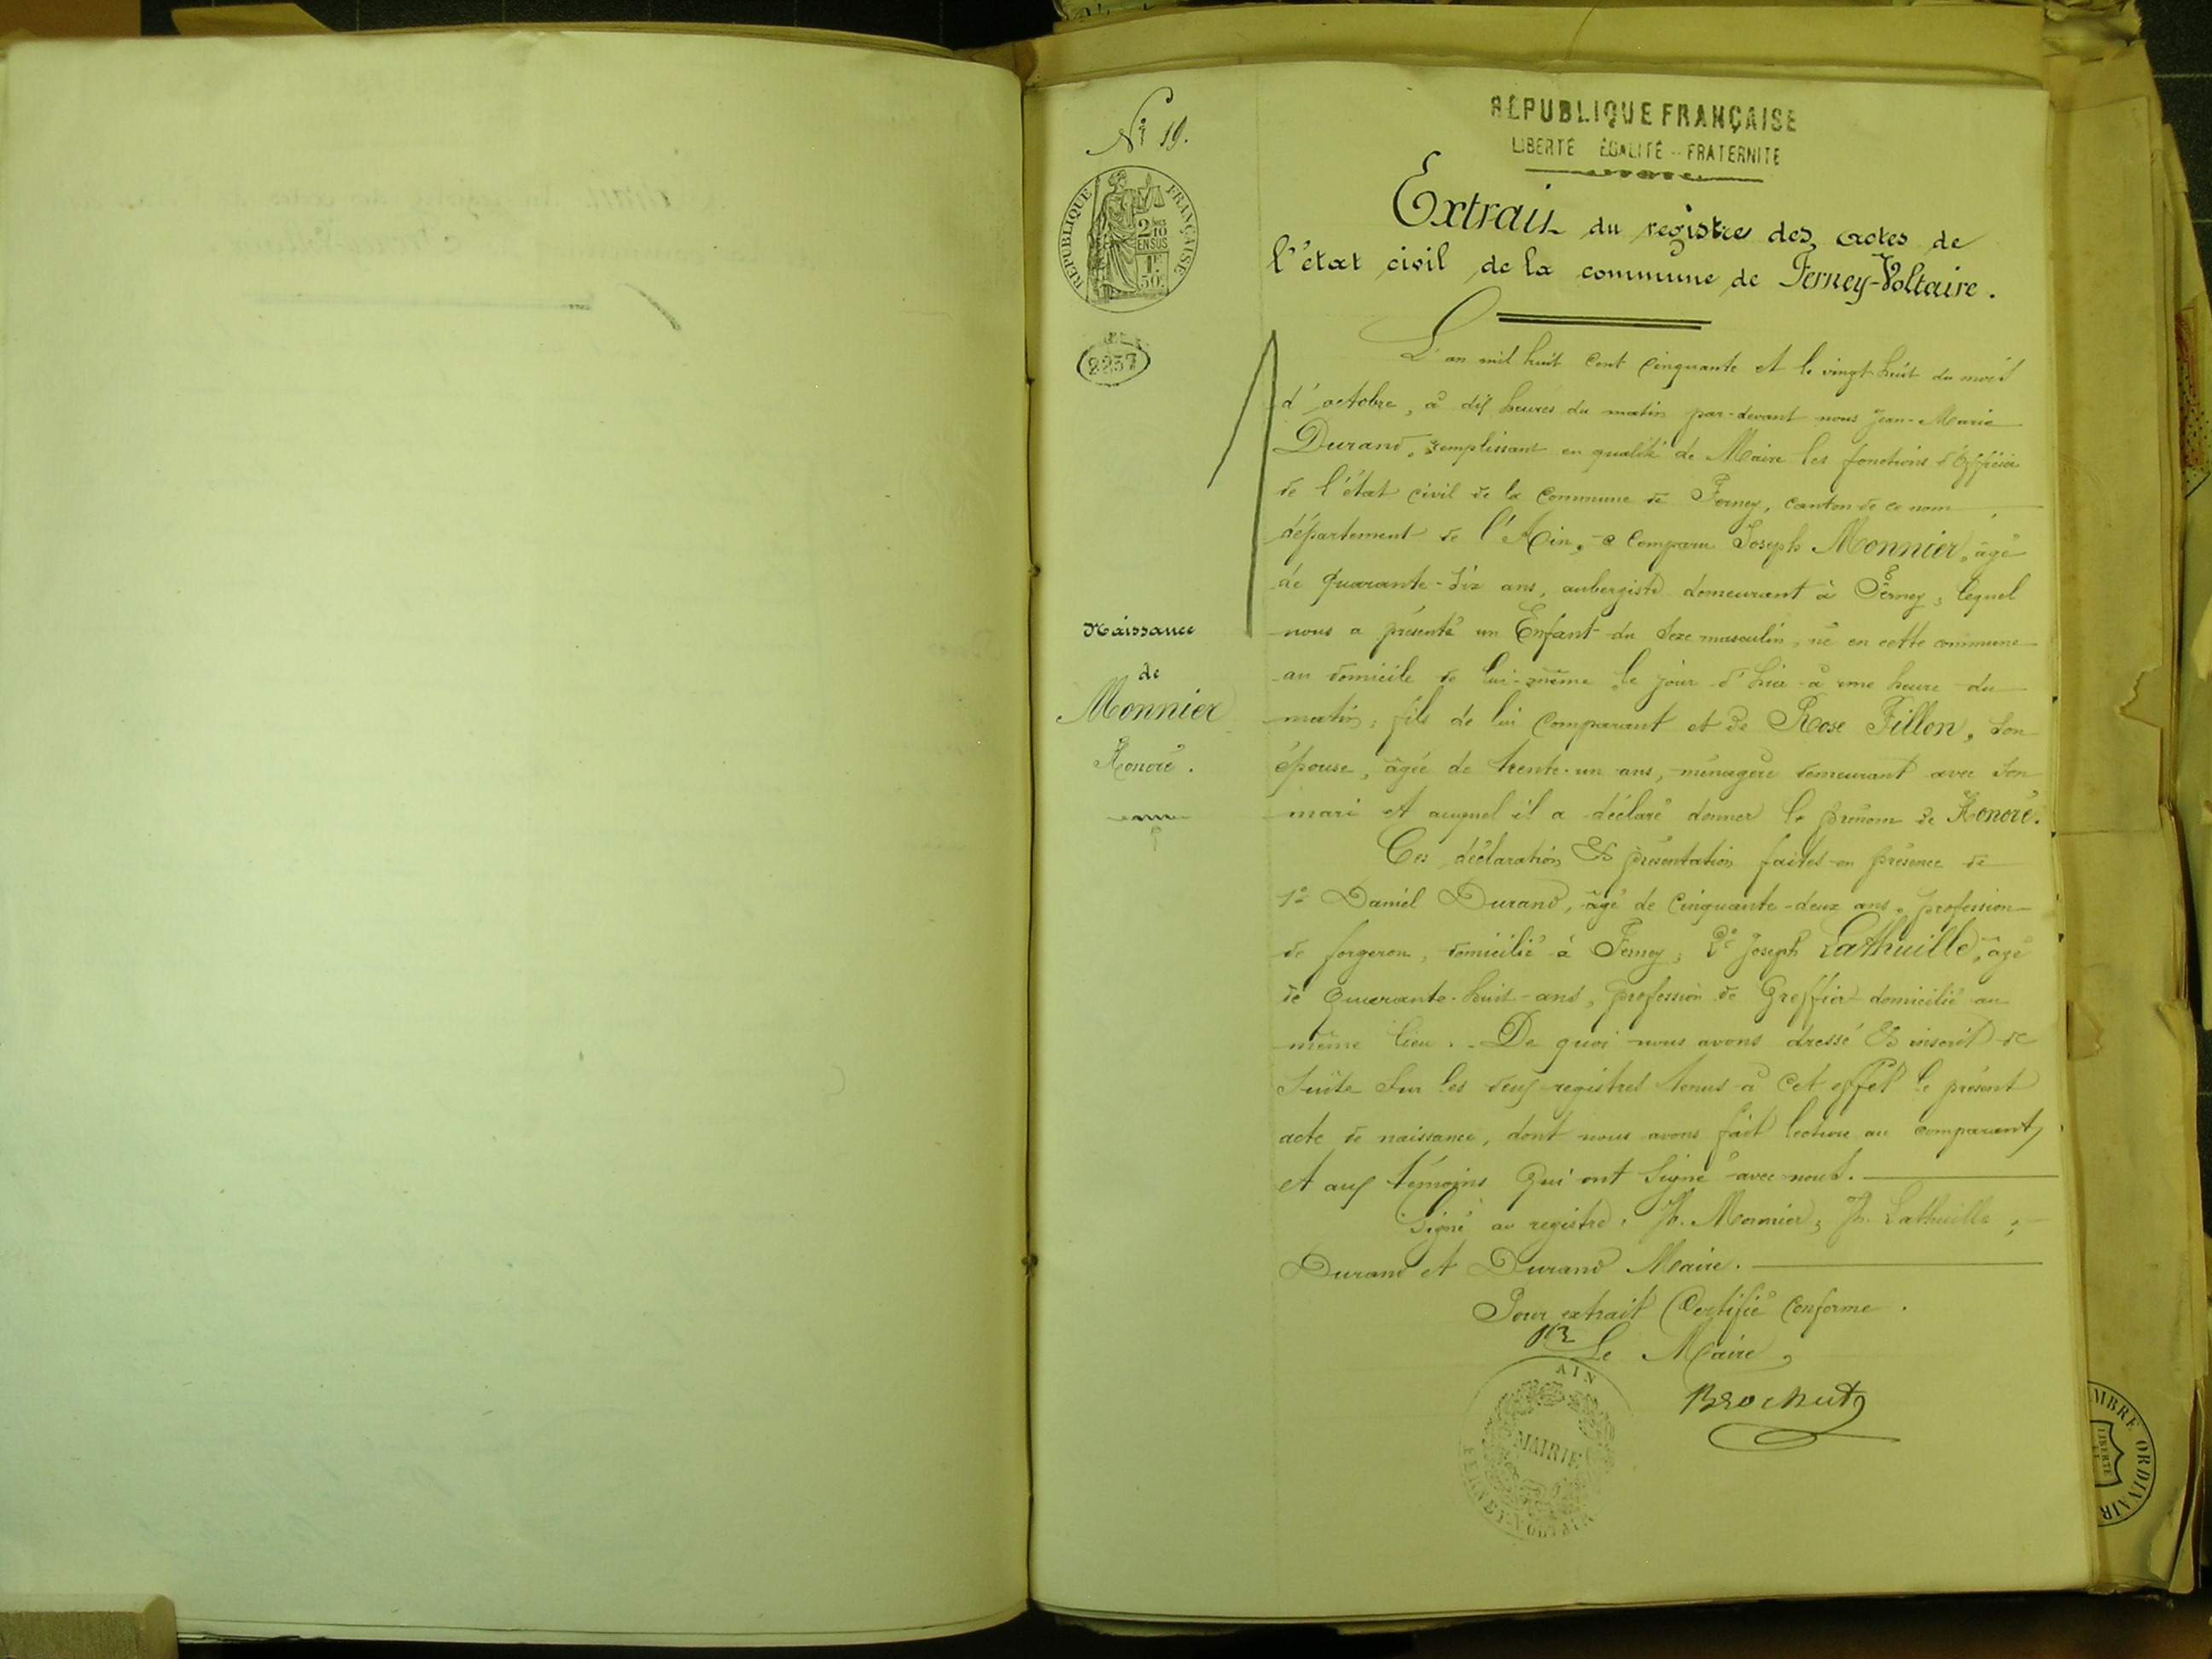 Nº 19.
RÉPUBLIQUE FRANÇAISE
LIBERTÉ ÉGALITÉ - FRATERNITÉ
RÉPUBLIQUE FRANÇAISE
2/10 EN SUS
1F 50C
2237
Extrait du registre des actes de
l'état civil de la commune de Ferney-Voltaire.
L'an mil huit cent cinquante et le vingt-huit du mois
d'octobre, à dix heures du matin par-devant nous Jean-Marie
Durand, remplissant en qualité de Maire les fonctions d'Officier
de l'état civil de la commune de Ferney, canton de ce nom
département de l'Ain, a comparu Joseph Monnier, âgé
de quarante-six ans, aubergiste demeurant à Ferney, lequel
nous a présenté un Enfant du sexe masculin, né en cette commune
au domicile de lui-même le jour d'hier à une heure du
matin; fils de lui comparant et de Rose Fillon, son
épouse, âgée de trente-un ans, ménagère demeurant avec son
mari et auquel il a déclaré donner le prénom de Honoré.
Naissance
de
Monnier
Honoré.
Ces déclaration & présentation faites en présence de
1º Daniel Durand, âgé de cinquante-deux ans, profession
de forgeron, domicilié à Ferney; 2º Joseph Lathuille, âgé
de quarante-huit-ans, profession de Greffier domicilié au
même lieu. - De quoi nous avons dressé & inscrit de
suite sur les deux registres tenus à cet effet le présent
acte de naissance, dont nous avons fait lecture au comparant,
et aux témoins qui ont signé avec nous.
Signé au registre, Jh. Monnier; Jh. Lathuille;
Durand et Durand Maire.
Pour extrait Certifié conforme.
Le Maire,
Brochut
AIN
MAIRIE
FERNEY-VOLTAIRE
MBRE ORDINAIR
LIBERTÉ